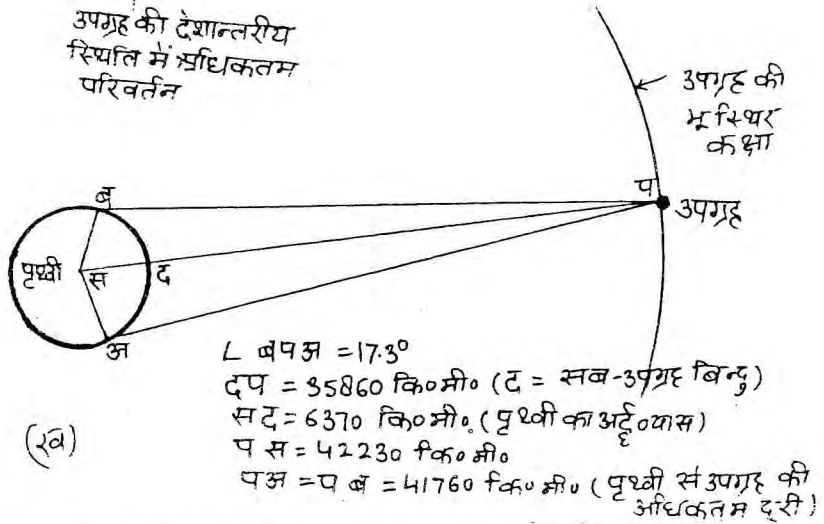 उपग्रह की देशान्तरीय
स्थिति में अधिकतम
परिवर्तन
उपग्रह की
भू स्थिर
कक्षा
प
उपग्रह
ब
पृथ्वी
स
द
अ
∠ बपअ = 17.3°
दप = 35860 कि०मी० (द = सब-उपग्रह बिन्दु)
सद = 6370 कि०मी० (पृथ्वी का अर्द्धव्यास)
पस = 42230 कि०मी०
पअ = पब = 41760 कि०मी० (पृथ्वी से उपग्रह की
अधिकतम दूरी)
(ख)